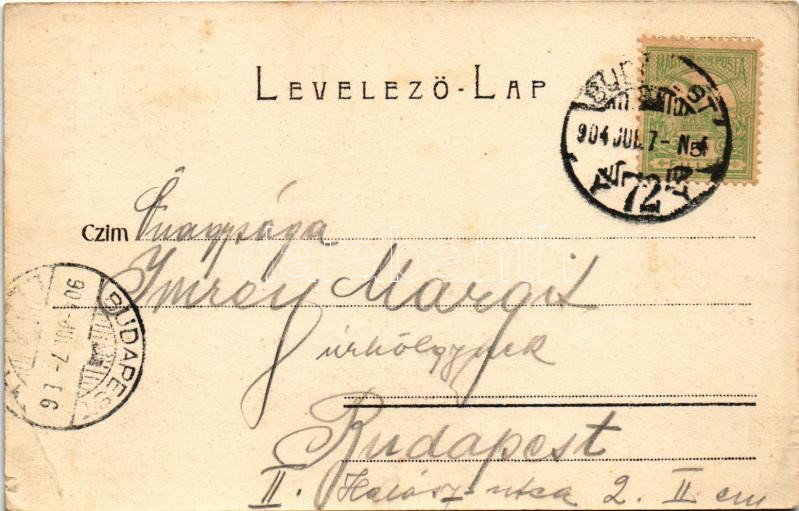 LEVELEZŐ-LAP
MAGYAR KIR. POSTA
BUDAPEST
904 JUL. 7 - N 4
5
72
Czim Őnagysága
Imrey Margit
úrhölgynek
Budapest
II. Halász-utca 2. II em
BUDAPEST
904 JUL. 7 - E 6
darabanth